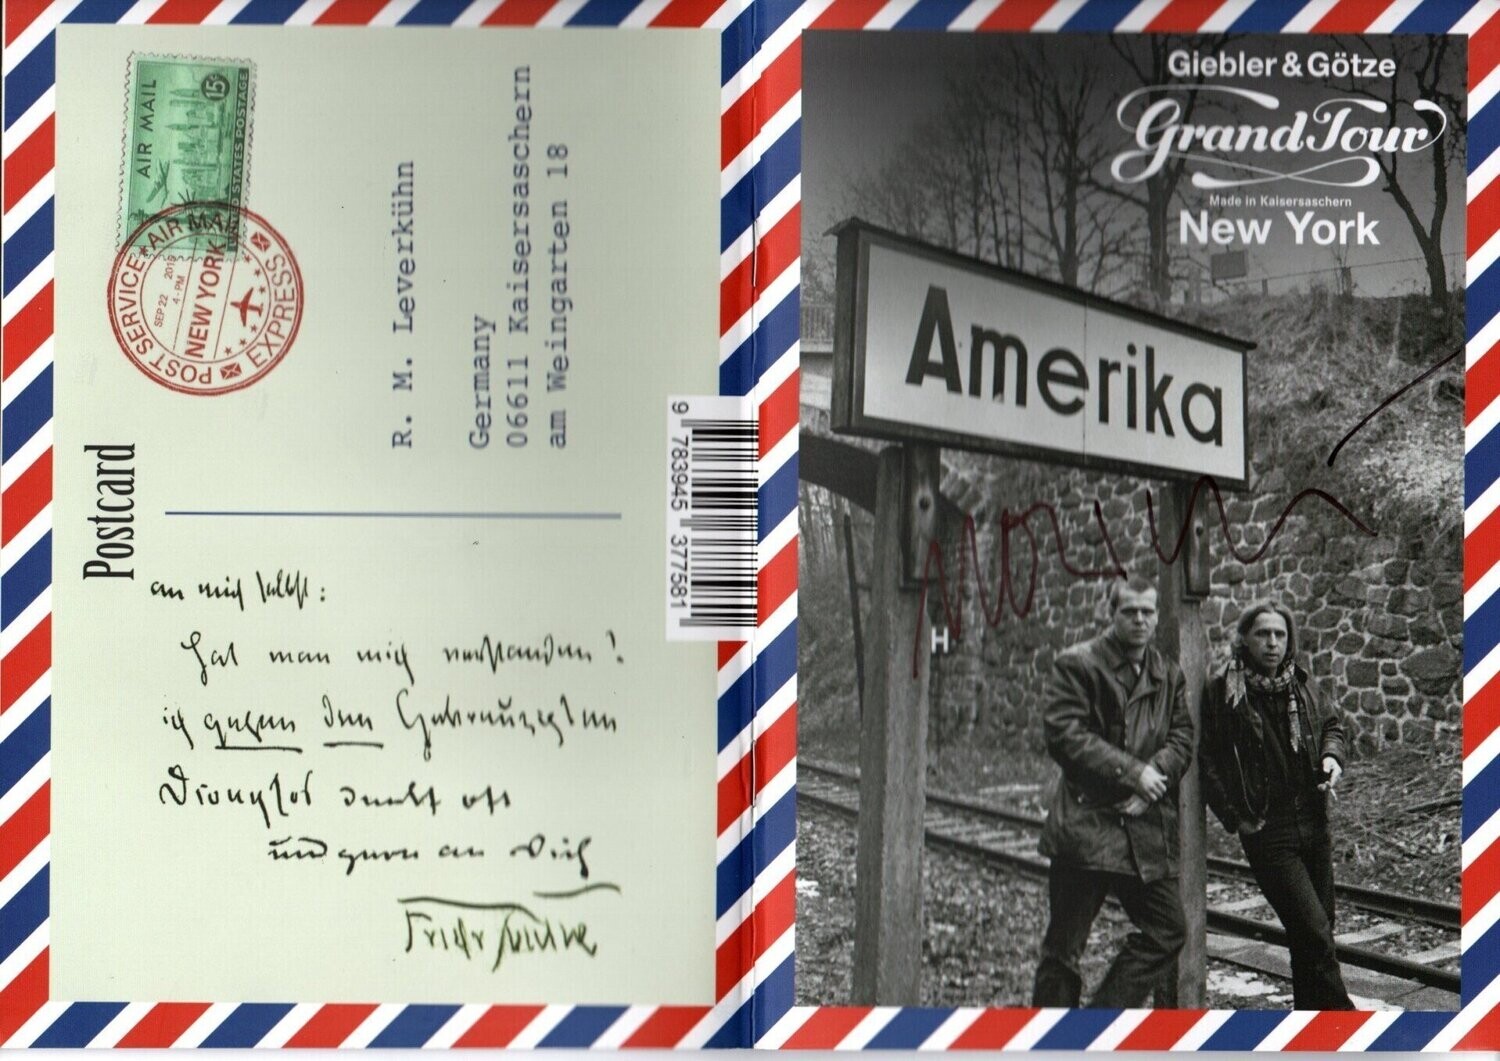 Postcard
AIR MAIL
15¢
UNITED STATES POSTAGE
POST SERVICE
AIR MAIL
EXPRESS
SEP 22
4-PM
NEW YORK
R. M. Leverkühn
Germany
06611 Kaisersaschern
am Weingarten 18
an mich selbst:
Hat man mich verstanden?
ich gegen den Gekreuzigten
Dionysos denkt oft
und gern an Dich
9 783945 377581
Giebler & Götze
Grand Tour
Made in Kaisersaschern
New York
Amerika
H